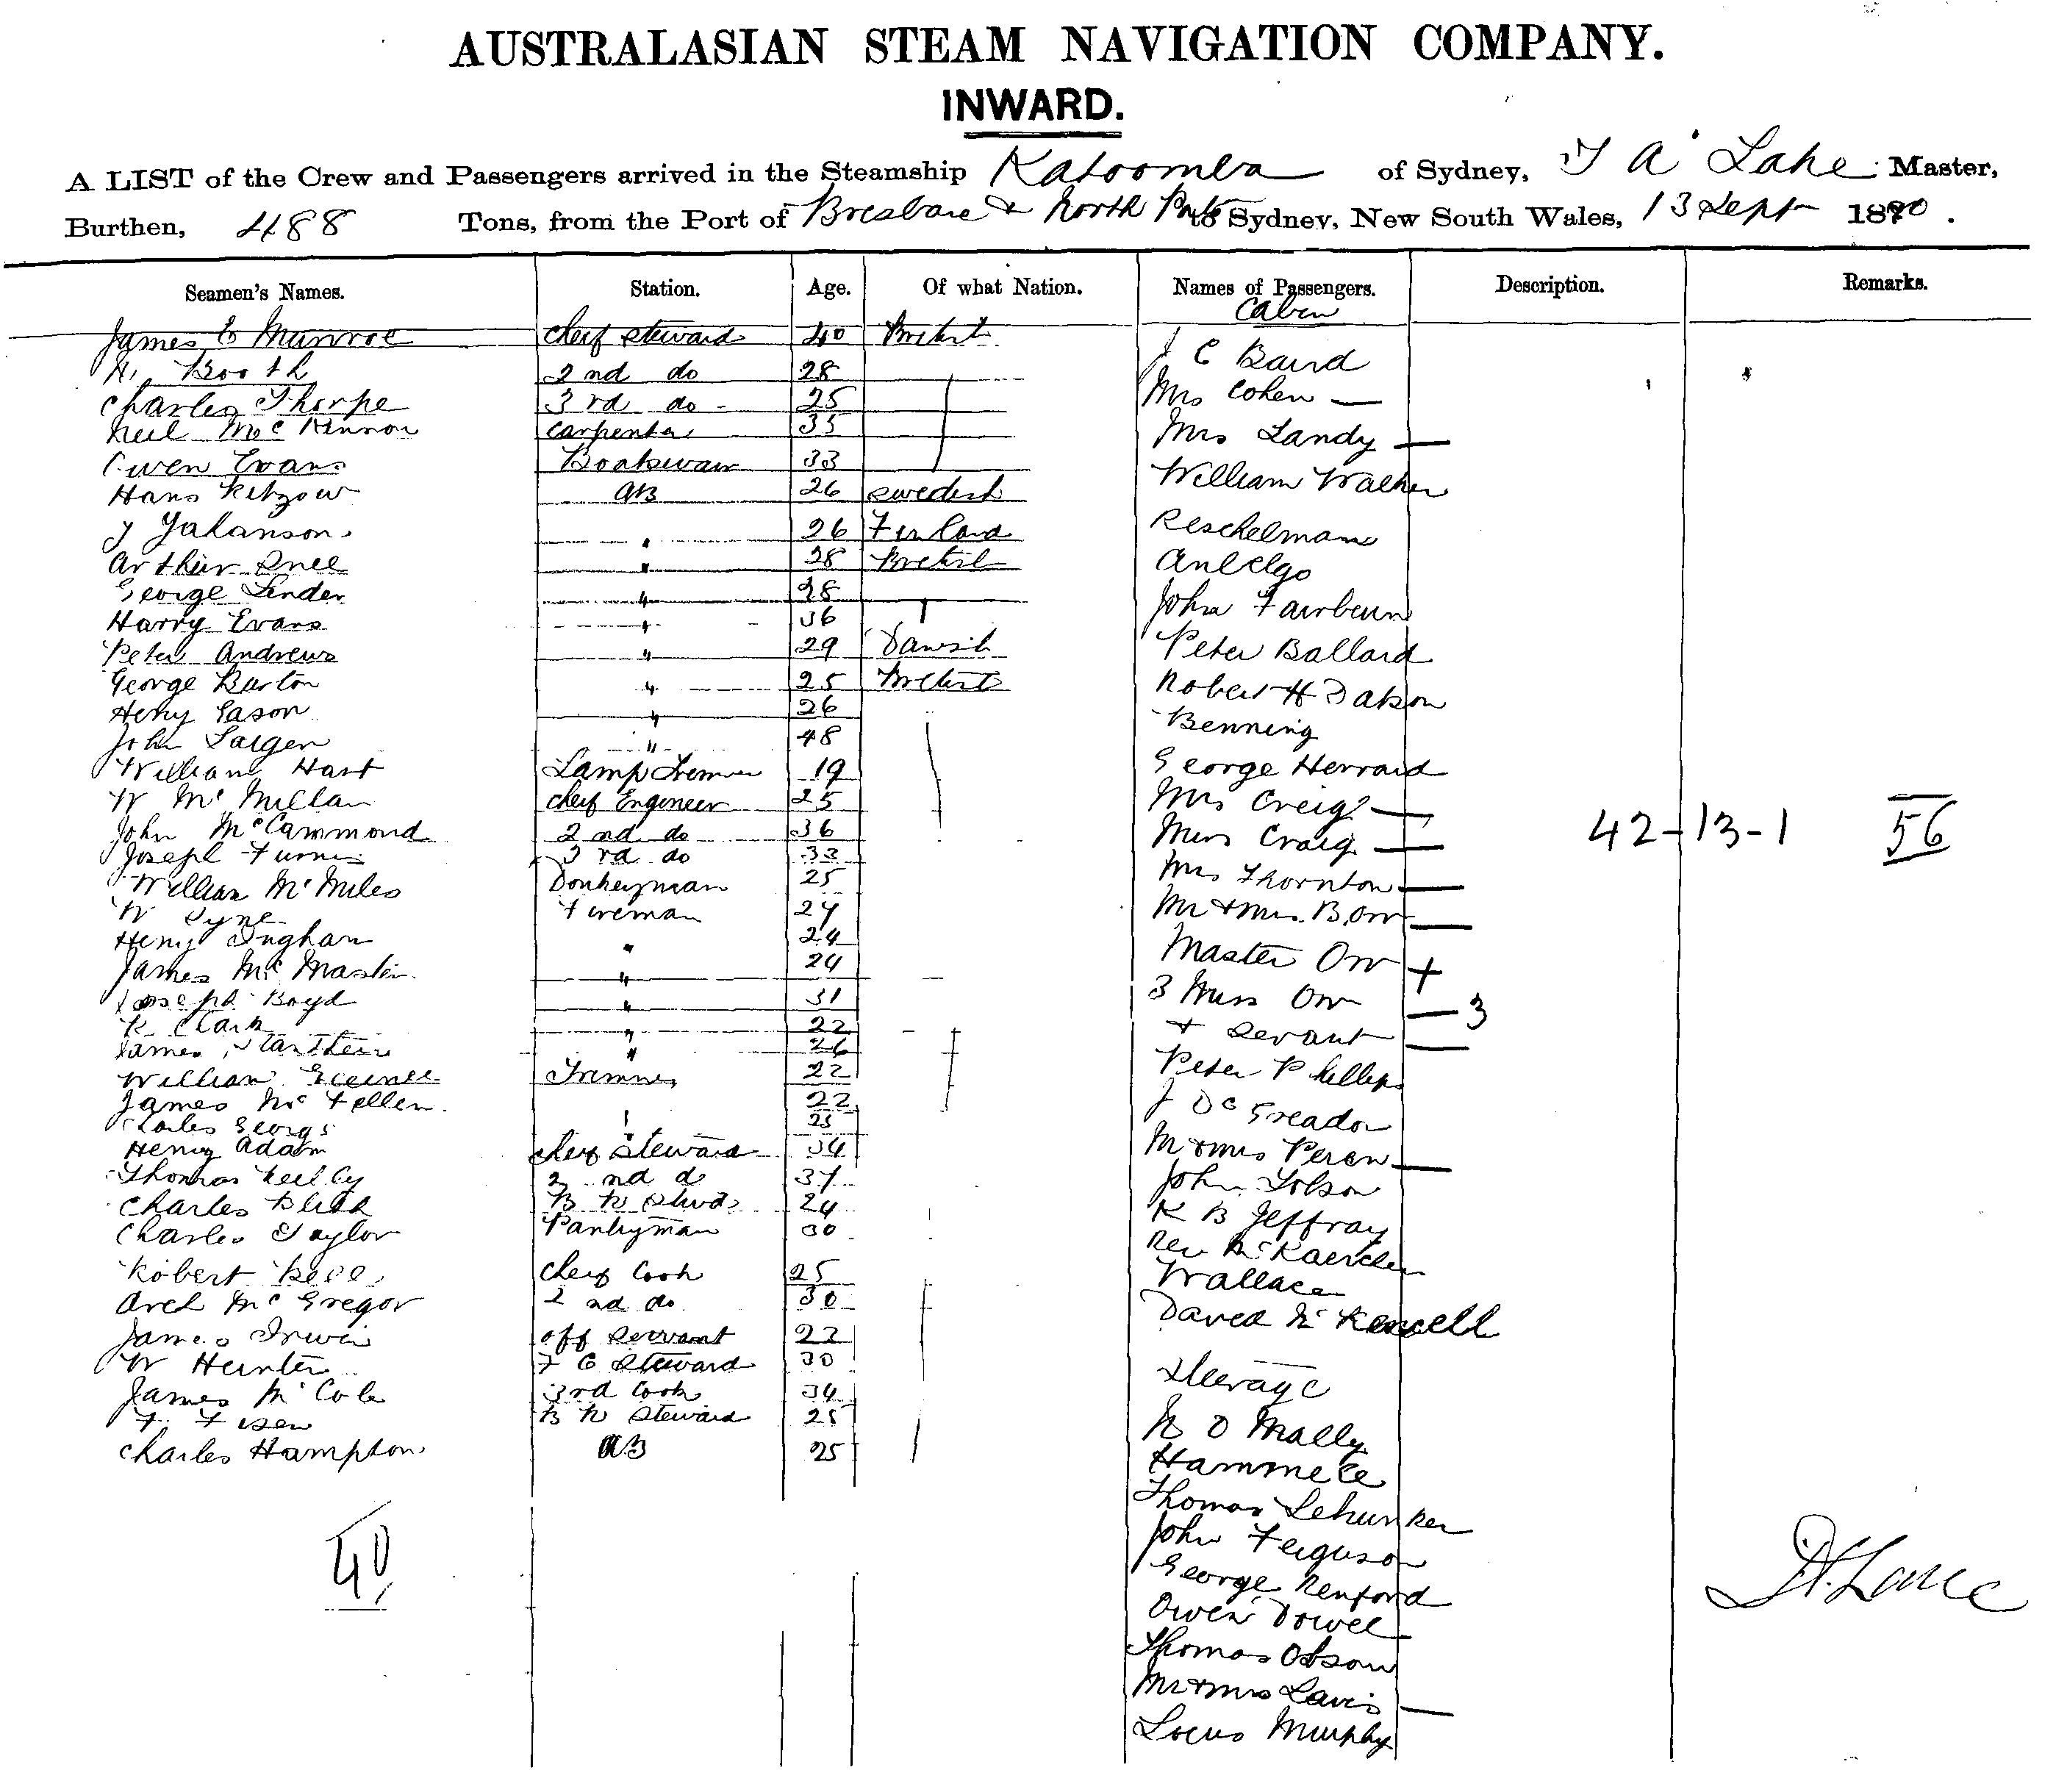 AUSTRALASIAN STEAM NAVIGATION COMPANY.
INWARD.
A LIST of the Crew and Passengers arrived in the Steamship Katoomba of Sydney, J A Lake Master,
Burthen, 488 Tons, from the Port of Brisbane & North Ports to Sydney, New South Wales, 13 Sept 1890.
Seamen's Names. Station. Age. Of what Nation. Names of Passengers. Description. Remarks.
Cabin
James E Munroe Cheif Steward 40 British
J C Baird
Booth 2nd do 28
Mrs Cohen —
Charles Thorpe 3rd do 25
Neil McKinnon Carpenter 35
Mrs Landy —
Owen Evans Boatswain 33
William Walker
Hans Retzow AB 26 Swedish
J Johanson " 26 Finland
Reschelman
Arthur Snell " 28 British
George Linder " 28
John Fairbeirn
Harry Evans " 36
Peter Andrews " 29 Danish
Peter Ballard
George Barton " 25 British
Robert H Dabson
Henry Eason " 26
Benning
John Saigen " 48
William Hart Lamp Trimmer 19
George Herraid
W McMillan Cheif Engineer 25
Mrs Creig —
John McCammond 2nd do 36
Miss Craig — 42-13-1 56
Joseph Turner 3rd do 33
William McMiles Donkeyman 25
Mrs Thornton —
W Syne Fireman 24
Mr & Mrs B. Orr —
Henry Ingham " 24
Master Orr +
James McMaster " 24
3 Miss Orr — 3
Joseph Boyd " 31
R Clark " 22
+ Servant —
James " 26
William Trimmer 22
Peter Phillips
James McFellen 22
Charles George 25
Henry Adam Cheif Steward 34
Mr & Mrs Peren —
Thomas Neilly 2nd do 37
John Tolson
Charles Blick B R Stwd 24
K B Jeffray
Charles Taylor Pantryman 30
Rev McKaercher
Robert Bell Cheif Cook 25
Wallace
Arch McGregor 2nd do 30
David McKensell
James Irwin off Servant 22
W Hunter F C Steward 30
Steerage
James McCole 3rd Cook 34
B R Steward 25
N O Mally
Charles Hampton AB 25
Hammele
Thomas Lehunker
John Ferguson
40
George Renford
Owen Dowell
Thomas Obson
Mr & Mrs Lavis —
Locus Murphy